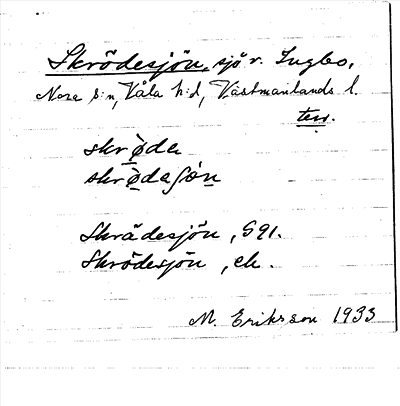 Skrödesjön, sjö v. Ingbo,
Nora s:n, Våla h:d, Västmanlands l.
terr.
skrǿda
skrǿdaʃøn
Skrädesjön, G 91.
Skrödesjön, ek.
M. Eriksson 1933